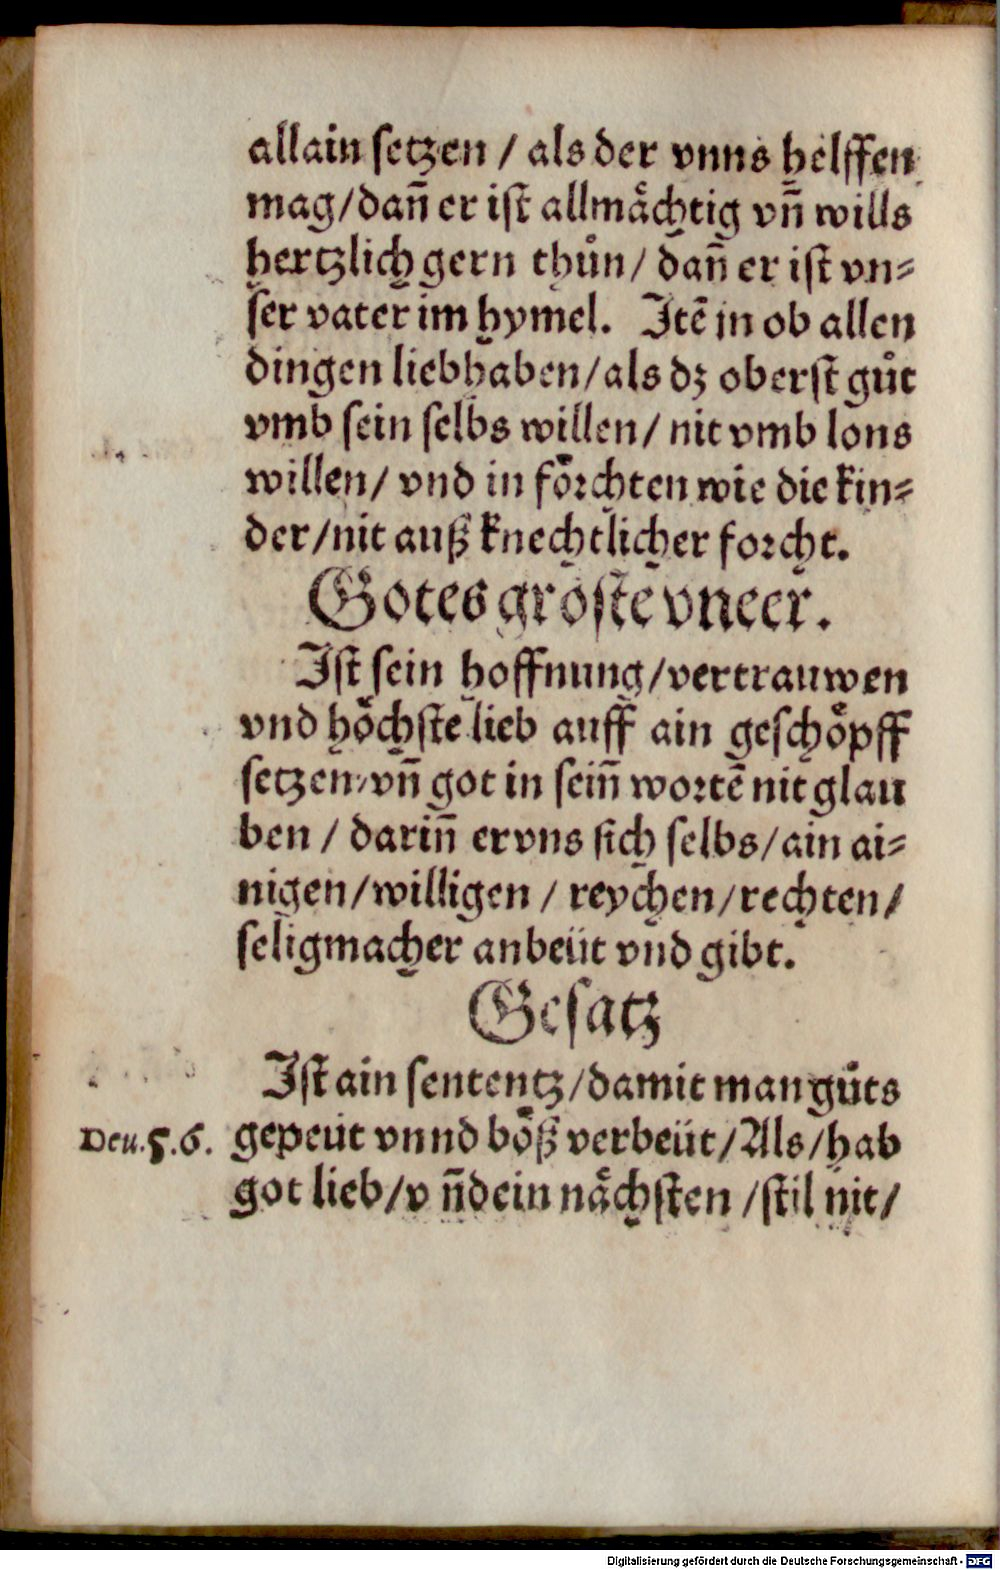 allain setzen / als der vnns helffen
mag/dañ er ist allmaͤchtig vñ wills
hertzlich gern thuͦn/ dañ er ist vn⸗
ser vater im hymel. Itē jn ob allen
dingen liebhaben/als dz oberst guͦt
vmb sein selbs willen/ nit vmb lons
willen/ vnd in foͤrchten wie die kin⸗
der/nit auß knechtlicher forcht.
Gotes groͤste vneer.
Ist sein hoffnung/vertrauwen
vnd hoͤchste lieb auff ain geschoͤpff
setzen/vñ got in seiñ wortē nit glau
ben / dariñ er vns sich selbs/ain ai⸗
nigen/willigen / reychen/rechten/
seligmacher anbeüt vnd gibt.
Gesatz
Ist ain sententz/damit man guͦts
Deu.5.6. gepeüt vnnd boͤß verbeüt/Als/hab
got lieb/v ñdein naͤchsten /stil nit/
Digitalisierung gefördert durch die Deutsche Forschungsgemeinschaft - DFG